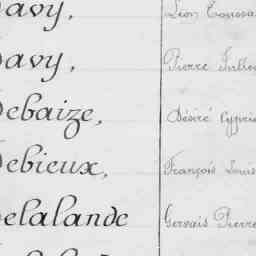 avy, Léon
avy, Pierre
ebaize, Désiré
ebieux, François Louis
elalande Gervais Pierre